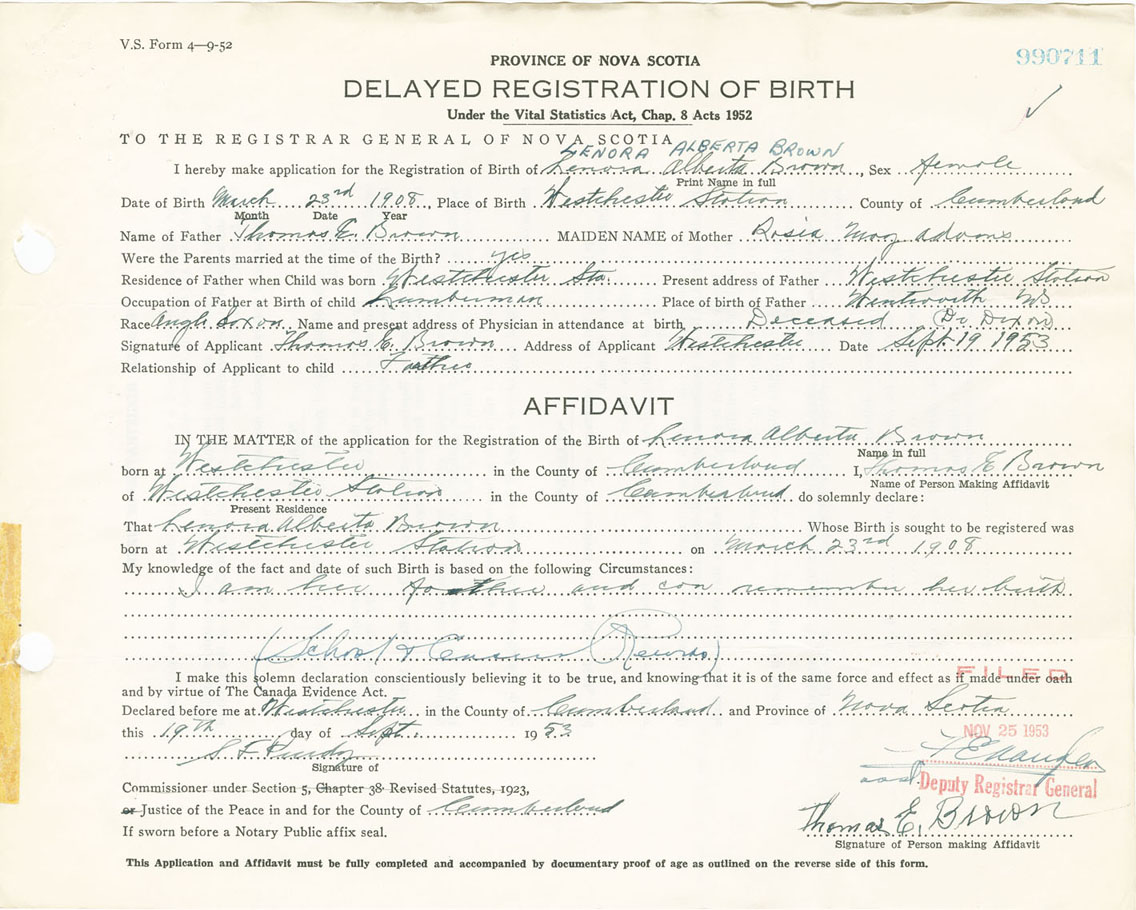 V.S. Form 4—9-52
990711
PROVINCE OF NOVA SCOTIA
DELAYED REGISTRATION OF BIRTH
Under the Vital Statistics Act, Chap. 8 Acts 1952
TO THE REGISTRAR GENERAL OF NOVA SCOTIA
LENORA ALBERTA BROWN
I hereby make application for the Registration of Birth of Lenora Alberta Brown, Sex Female
Print Name in full
Date of Birth March 23rd 1908, Place of Birth Westchester Station County of Cumberland
Month Date Year
Name of Father Thomas E. Brown MAIDEN NAME of Mother Rosia May
Were the Parents married at the time of the Birth? yes
Residence of Father when Child was born Westchester Sta. Present address of Father Westchester Station
Occupation of Father at Birth of child Lumberman Place of birth of Father Wentworth NS
Race Anglo Saxon Name and present address of Physician in attendance at birth, Deceased (Dr. Dixon)
Signature of Applicant Thomas E. Brown Address of Applicant Westchester Date Sept 19 1953
Relationship of Applicant to child Father
AFFIDAVIT
IN THE MATTER of the application for the Registration of the Birth of Lenora Alberta Brown
Name in full
born at Westchester in the County of Cumberland I, Thomas E Brown
Name of Person Making Affidavit
of Westchester Station in the County of Cumberland do solemnly declare:
Present Residence
That Lenora Alberta Brown Whose Birth is sought to be registered was
born at Westchester Station on March 23rd 1908
My knowledge of the fact and date of such Birth is based on the following Circumstances:
I am her Father and can remember her birth
(School & Census Records)
I make this solemn declaration conscientiously believing it to be true, and knowing that it is of the same force and effect as if made under oath
FILED
and by virtue of The Canada Evidence Act.
Declared before me at Westchester in the County of Cumberland and Province of Nova Scotia
this 19th day of Sept. 1953
NOV 25 1953
S F Purdy
Signature of
Deputy Registrar General
Commissioner under Section 5, Chapter 38 Revised Statutes, 1923,
or Justice of the Peace in and for the County of Cumberland
Thomas E. Brown
If sworn before a Notary Public affix seal.
Signature of Person making Affidavit
This Application and Affidavit must be fully completed and accompanied by documentary proof of age as outlined on the reverse side of this form.